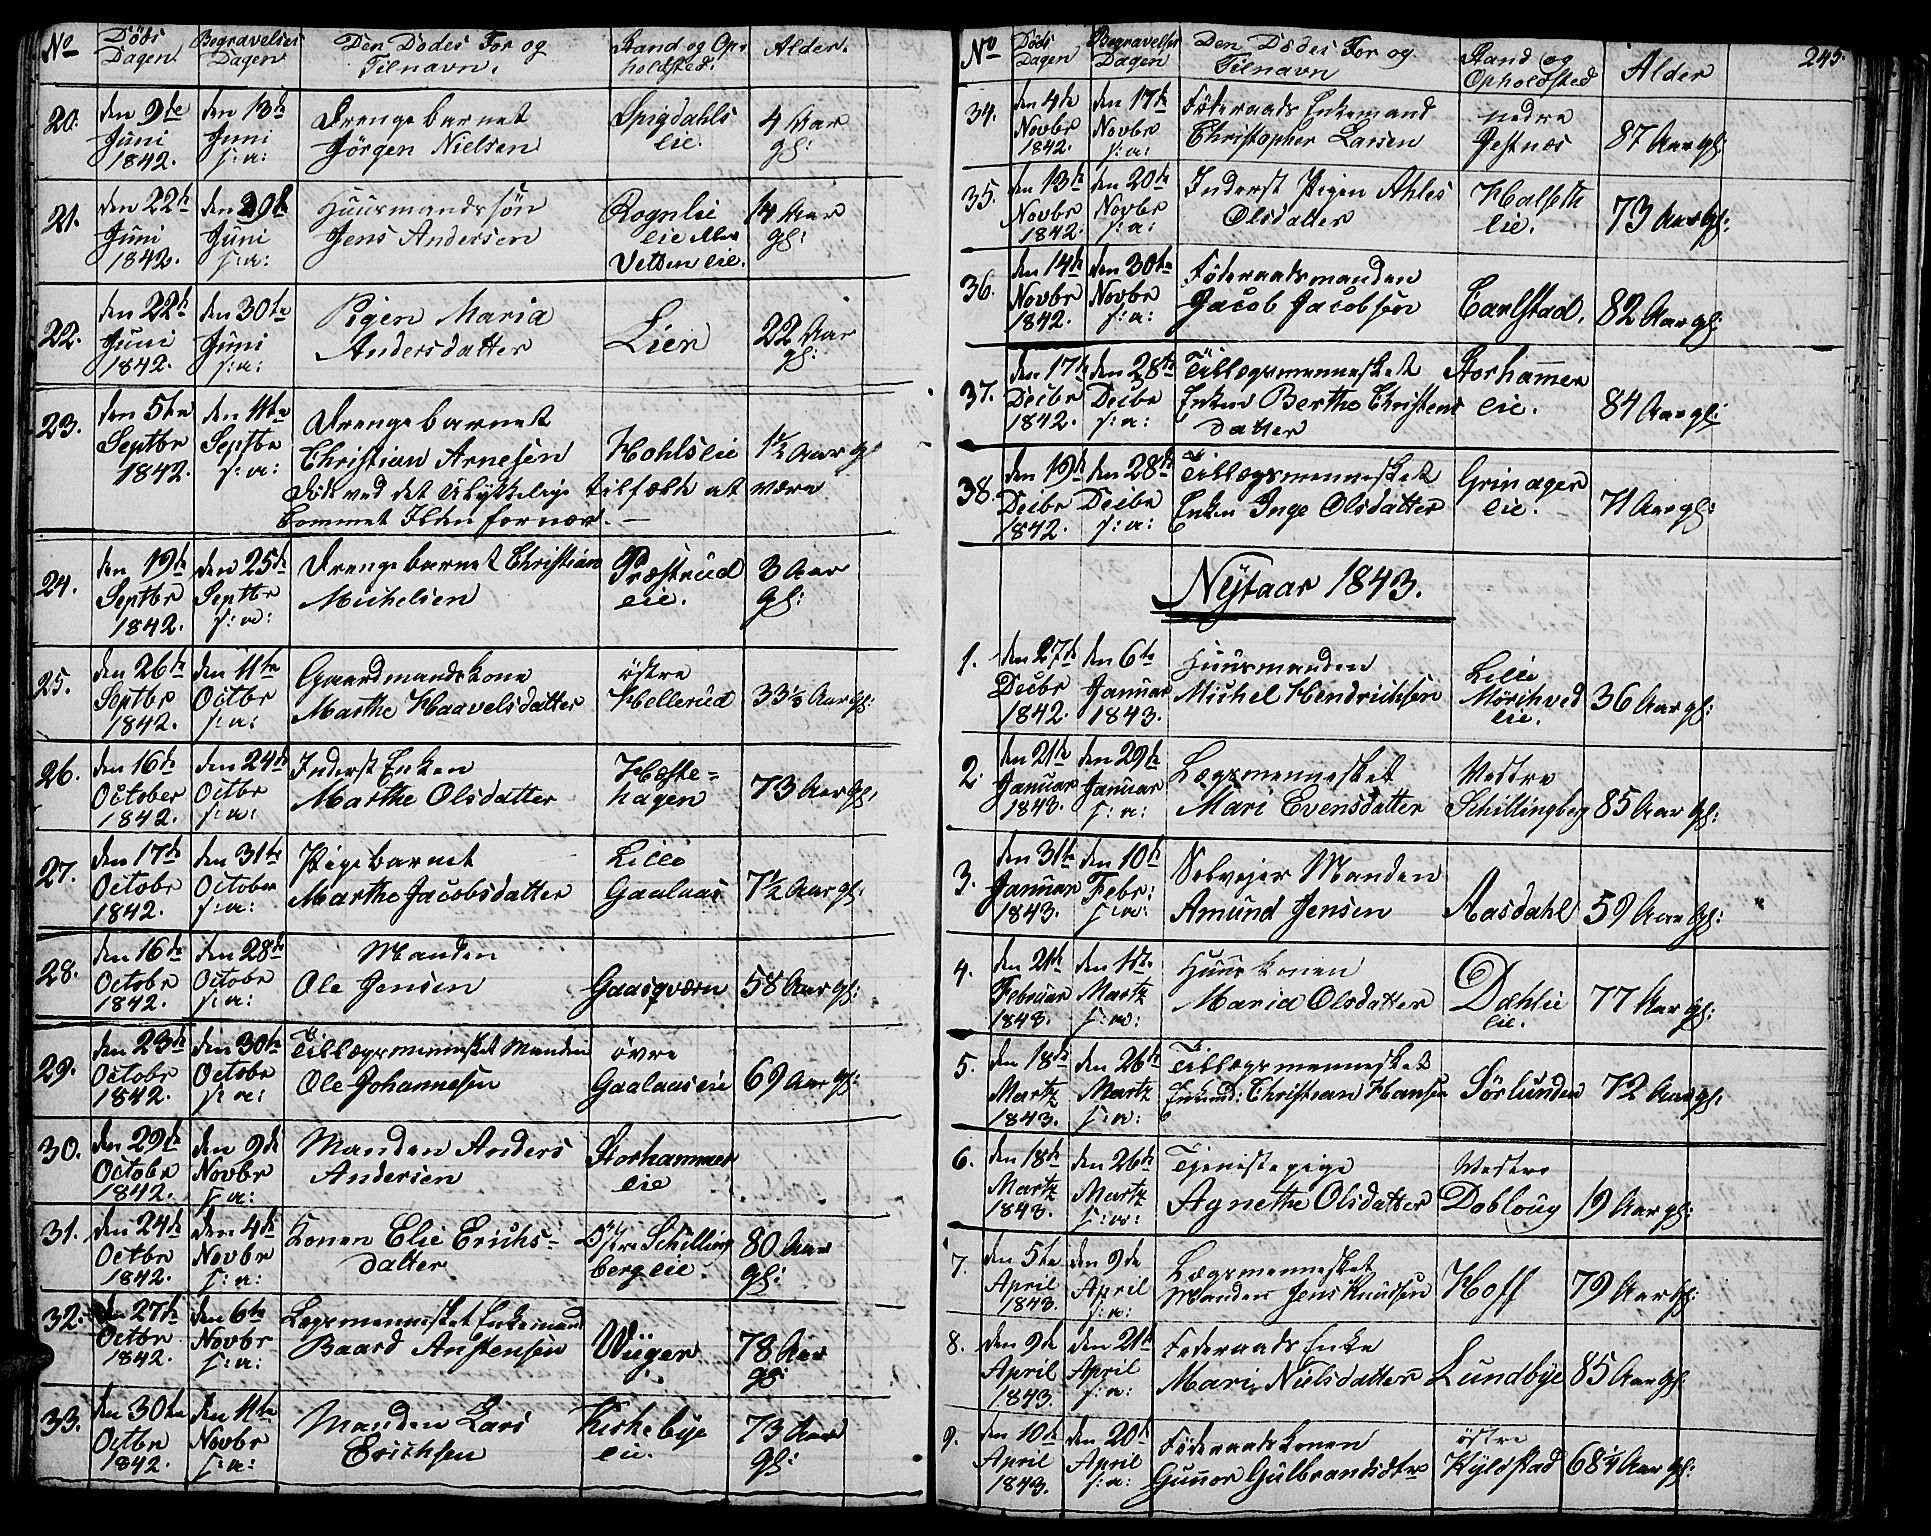 No Døds Dagen Begravelses Dagen Den Dødes For og Tilnavn. Stand og Opholdsted. Alder.
20. den 9de Juni 1842. den 13de Juni s: a: Drengebarnet Jörgen Nielsen Spigdahls eie. 4 Aar gl:
21. den 22de Juni 1842. den 30te Juni s: a: Huusmandssön Jens Andersen Rognlie eie Vetten eie. 14 Aar gl:
22. den 22de Juni 1842. den 30te Juni s: a: Pigen Maria Andersdatter Lien 22 Aar gl:
23. den 5te Septbr 1842. den 11te Septbr s: a: Drengebarnet Christian Arnesen Hohlseie 1½ Aar gl
Döde ved det Ulykkelige tilfælde at være
kommet Ilden for nær. —
24. den 19de Septbr 1842. den 25de Septbr s: a: Drengebarnet Christian Michelsen Præstrud eie. 3 Aar gl:
25. den 26de Septbr 1842. den 11te Octbr s: a: Gaardmandskone Marthe Haavelsdatter östre Hellerud 33 Aar gl:
26. den 16de October 1842. den 24de Octbr s: a: Inderst Enken Marthe Olsdatter Hestehagen 73 Aar gl:
27. den 17de Octobr 1842. den 31te October s: a: Pigebarnet Marthe Jacobsdatter Lille Gaalaas 7½ Aar gl:
28. den 16de Octobr 1842. den 28de Octobr s: a: Manden Ole Jensen Gaasqværn 58 Aar gl:
29. den 23de Octobr 1842. den 30te Octobr s: a: Tillægsmennisket Manden Ole Johannesen övre Gaalaas eie 69 Aar gl:
30. den 29de Octobr 1842. den 9de Novbr s: a: Manden Anders Andersen Storhammer eie
31. den 24de Octbr 1842. den 4de Novbr s: a: Konen Elie Erichsdatter Östre Schillingberg eie. 80 Aar gl:
32. den 27de Octbr 1842. den 6te Novbr s: a: Lægsmennisket Enkemand Baard Anstensen Wiiger 78 Aar gl:
33. den 30te Octbr 1842. den 11te Novbr s: a: Manden Lars Erichsen Kirkebye eie. 73 Aar gl:
245.
No Døds Dagen Begravelses Dagen Den Dødes For og Tilnavn Stand og Opholdsted Alder
34. den 4de Novbr 1842. den 17de Novbr s: a: Föderaads Enkemand Christopher Larsen nedre Jesnæs 87 Aar gl:
35. den 13de Novbr 1842. den 20de Novbr s: a: Inderst Pigen Ahles Olsdatter Halseth eie. 73 Aar gl:
36. den 14de Novbr 1842. den 30te Novbr s: a: Föderaadsmanden Jacob Jacobsen Carlstad. 82 Aar gl:
37. den 17de Decbr 1842. den 28de Decbr s: a: Tillægsmennesket Enken Berthe Christensdatter Storhamer eie. 84 Aar gl:
38. den 19de Decbr 1842. den 28de Decbr s: a: Tillægsmennesket Enken Inge Olsdatter Grinager eie. 71 Aar gl:
Nytaar 1843.
1. den 27de Decbr 1842. den 6te Januar 1843. Huusmanden Michel Hendrichsen Lille Mörchved eie. 36 Aar gl:
2. den 21de Januar 1843. den 29de Januar s: a: Lægsmennesket Mari Evensdatter Vestre Schillingberg 85 Aar gl:
3. den 31te Januar 1843. den 10de Febr: s: a: Selveier Manden Amund Jensen Aasdahl 59 Aar gl:
4. den 21de Februar 1843. den 1te Martz s: a: Huus konen Maria Olsdatter Dæhlie eie. 77 Aar gl:
5. den 18de Martz 1843. den 26de Martz s: a: Tillægsmennesket Enkmd: Christian Hansen Sörlunden 72 Aar gl:
6. den 18de Martz 1843. den 26de Martz s: a: Tjenistepige Agnethe Olsdatter Vestre Dobloug 19 Aar gl:
7. den 5te April 1843. den 9de April s: a: Lægsmennesket Manden Jens Knudsen Hoff 79 Aar gl:
8. den 9de April 1843. den 21de April s: a: Föderaads Enke Mari Nielsdatter Lundbye 85 Aar gl:
9. den 10de April 1843. den 20de April s: a: Föderaadskonen Gunor Gulbrandsdtr östre Kyldstad 68¼ Aar gl: